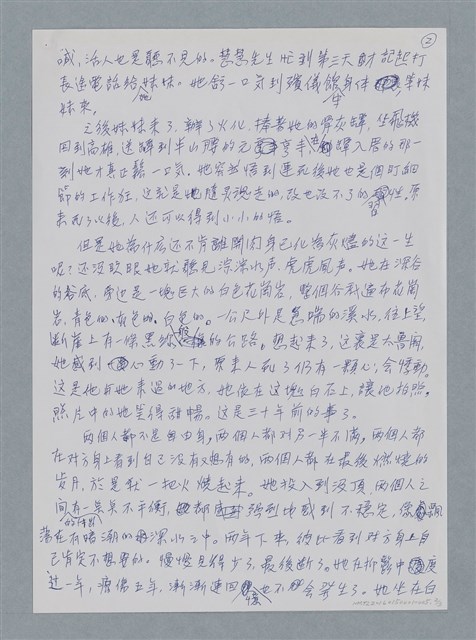 ②
喊，活人也是聽不見的。慧慧先生忙到第三天財記起打
長途電話給她妹妹。她舒一口気到殯儀館身体中，等妹
妹來。
之後妹妹來了，辦了火化，捧著她的骨灰罈，坐飛機
回到高雄，送歸到半山腰的元亨寺，罈入厝的那一
到她才真正鬆一口気。她突然悟到連死後她也是個盯細
節的工作狂，這就是她膽災魂走的，改也改不了的習性。原
來死了以後，人还可以得到小小的悟。
但是她為什厶还不肯離開肉身已化為灰燼的这一生
呢？还沒眨眼她就聽見淙淙水声，虎虎風声。她在深谷
的谷底，旁边是一塊巨大的白色花崗岩，整個谷到遍布花崗
岩，青色的、灰色的、白色的。一公尺外是急喘的溪水，往上望
断崖上有一條黑線般的公路。想起來了，这裏是太魯閣，
她感到心動一下，原來人死了仍有一顆心，会悸動。
这是他与她来過的地方，她依在这塊白石上，讓他拍照。
照片中的她笑得甜暢。这是三十年前的事了。
两個人都不是自由身，两個人都对另一半不满，两個人都
在对方身上看到自己没有又想有的，两個人都在最後燃燒的
岁月，於是就一把火燒起来。她投入到没頂，两個人之
間有一点的体溫不平衡，都强到地感到不穩定，像飄
蕩在有暗潮的深水之中。两年下来，彼此看到对方身上自
己肯定不想要的。慢慢見得少了，最後断了。她在抑鬱中度
过一年，療傷五年，漸漸連回憶也不会發生了。她坐在白